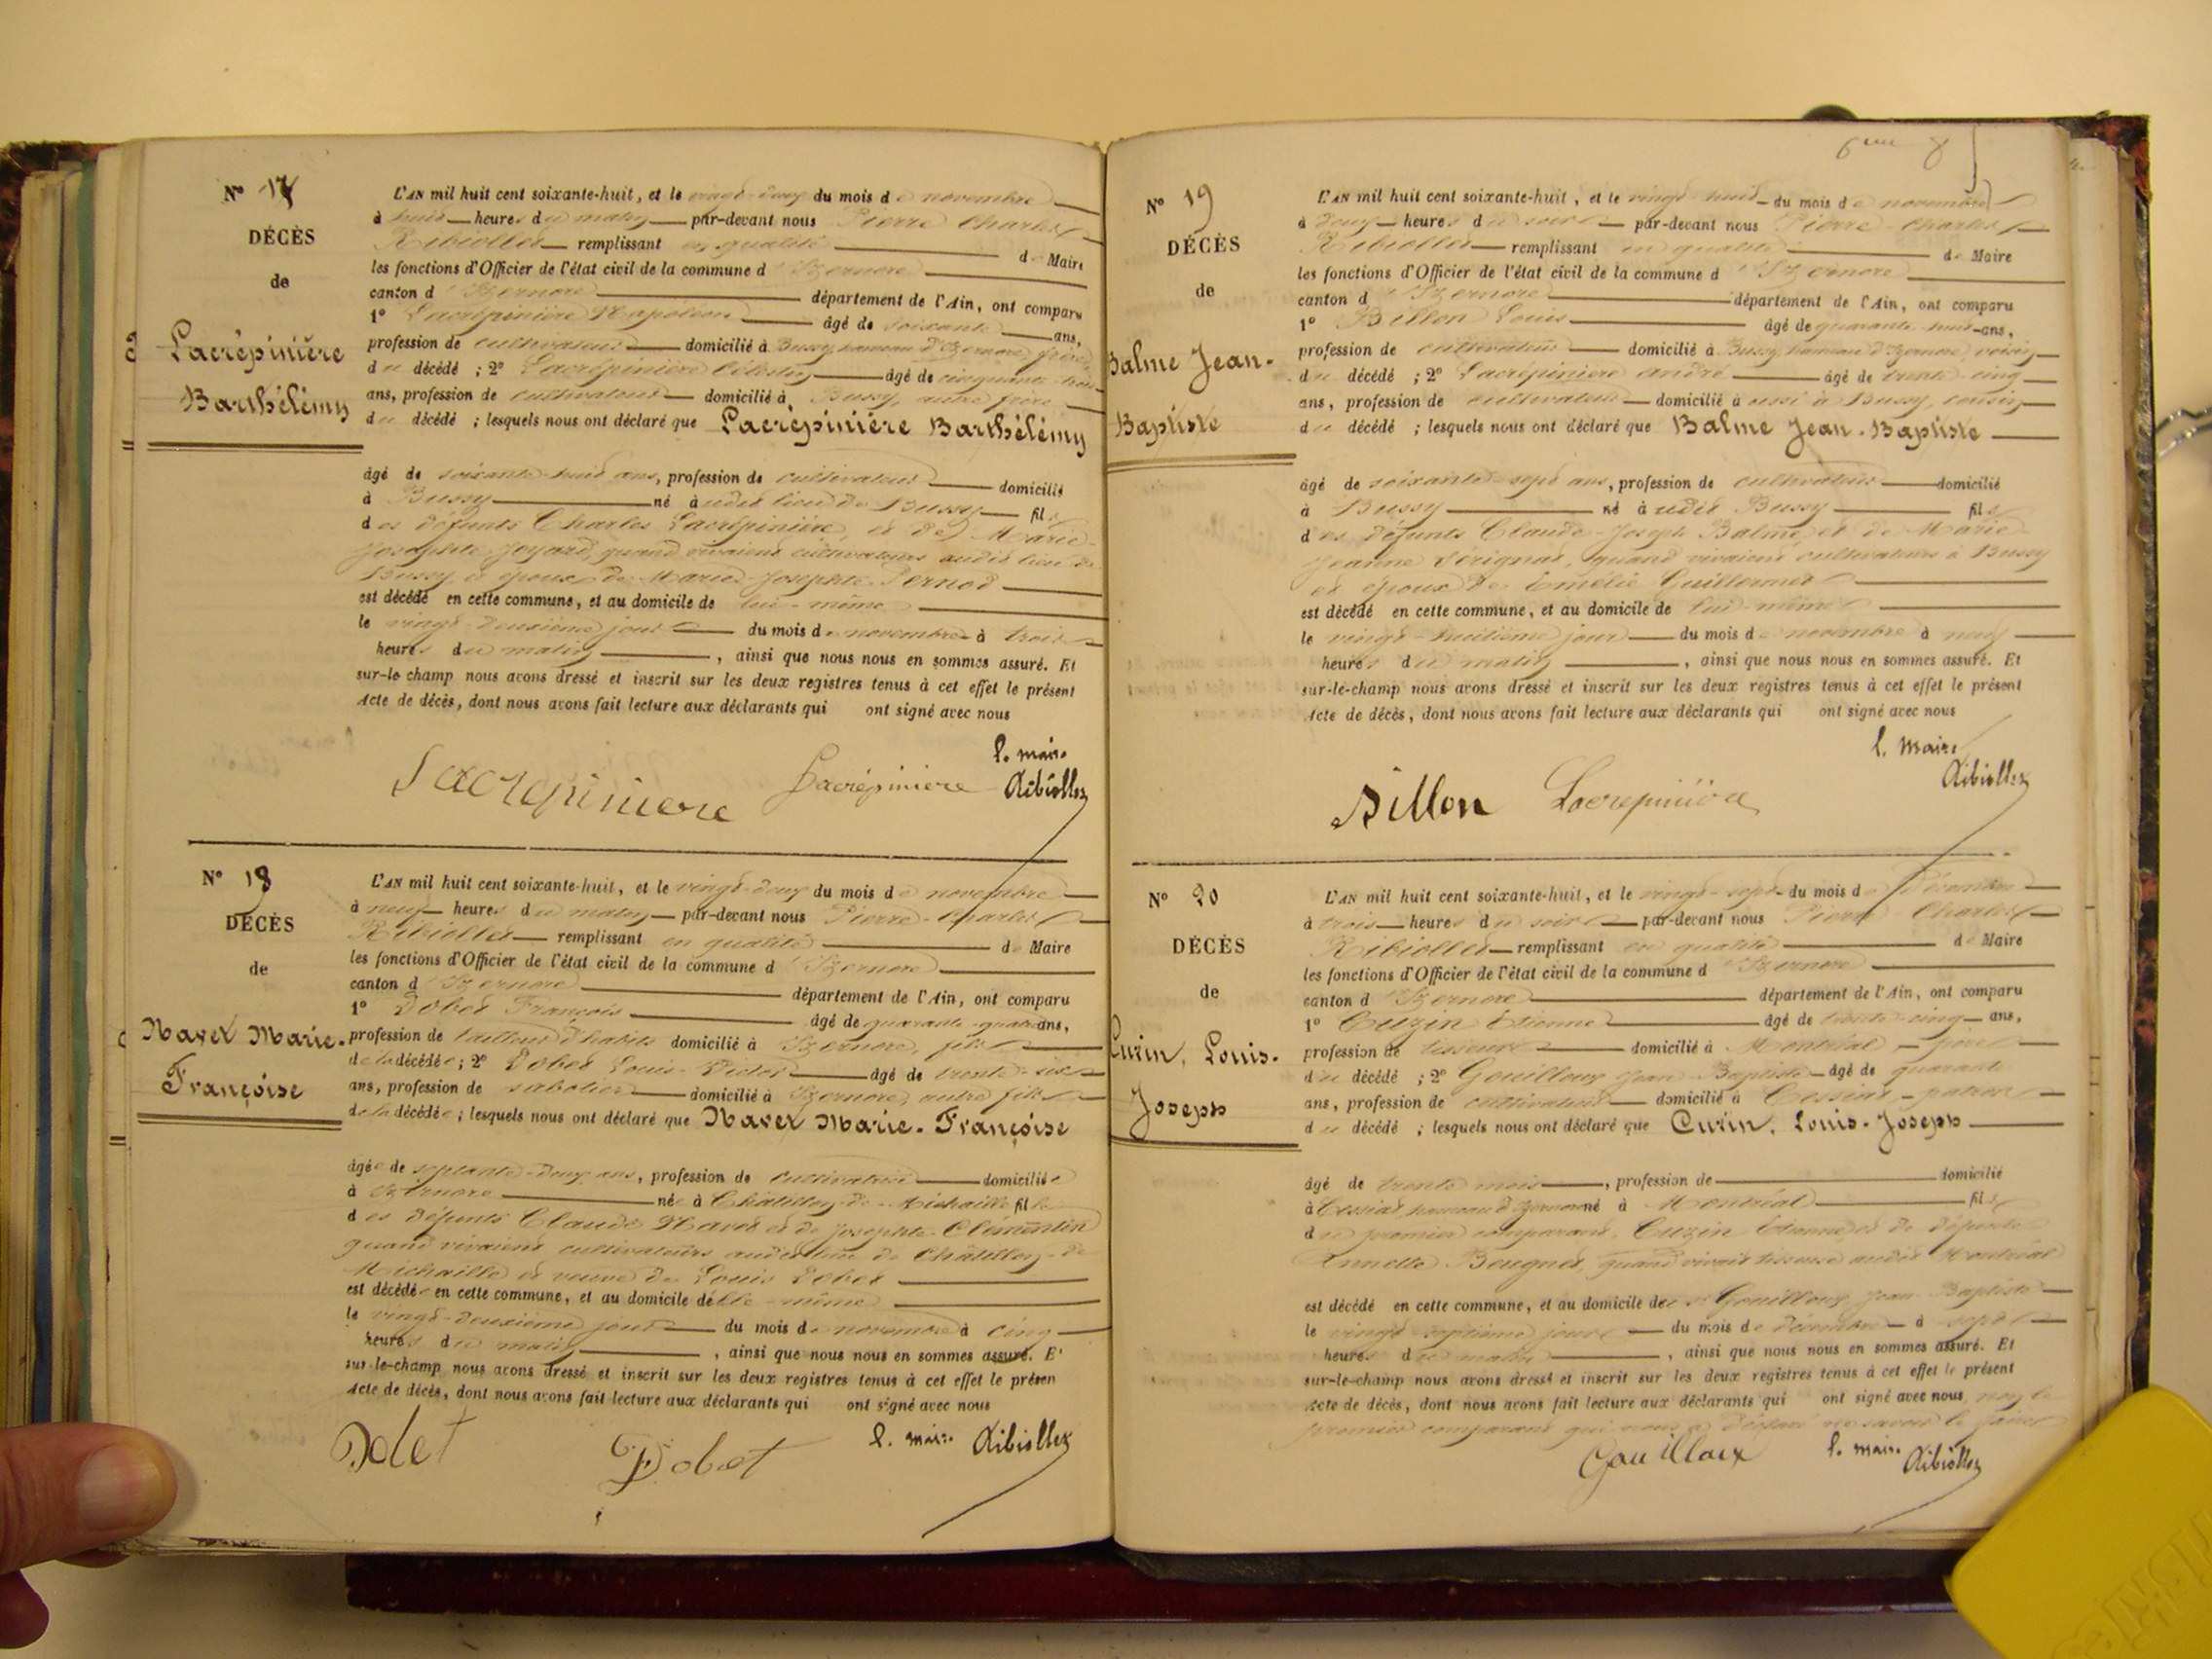 N° 17
DÉCÈS
de
Lacrépinière
Barthélémy
L'AN mil huit cent soixante-huit, et le vingt-deux du mois de novembre
à huit heures du matin par-devant nous Pierre Charles
Ribiollet remplissant en qualité de Maire
les fonctions d'Officier de l'état civil de la commune d'Izernore
canton d'Izernore département de l'Ain, ont comparu
1° Lacrépinière Napoléon âgé de soixante ans,
profession de cultivateur domicilié à Bussy, hameau d'Izernore, frère
du décédé ; 2° Lacrépinière Célestin âgé de cinquante-trois
ans, profession de cultivateur domicilié à Bussy, autre frère
du décédé ; lesquels nous ont déclaré que Lacrépinière Barthélémy
âgé de soixante-huit ans, profession de cultivateur domicilié
à Bussy né à udit lieu de Bussy fils
des défunts Charles Lacrépinière, et de Marie
Josephte Joyard, quand vivaient cultivateurs audit lieu de
Bussy et époux de Marie-Josephte Pernod
est décédé en cette commune, et au domicile de lui-même
le vingt-deuxième jour du mois de novembre à trois
heures du matin, ainsi que nous nous en sommes assuré. Et
sur-le champ nous avons dressé et inscrit sur les deux registres tenus à cet effet le présent
Acte de décès, dont nous avons fait lecture aux déclarants qui ont signé avec nous
Lacrepiniere Lacrépiniere l. maire
Ribiollet
N° 18
DÉCÈS
de
Navet Marie-
Françoise
L'AN mil huit cent soixante-huit, et le vingt-deux du mois de novembre
à neuf heures du matin par-devant nous Pierre-Charles
Ribiollet remplissant en qualité de Maire
les fonctions d'Officier de l'état civil de la commune d'Izernore
canton d'Izernore département de l'Ain, ont comparu
1° Dobet François âgé de quarante-quatre ans,
profession de tailleur d'habits domicilié à Izernore, fils
de la décédée ; 2° Dobet Louis-Victor âgé de trente-six
ans, profession de sabotier domicilié à Izernore, autre fils
de la décédée ; lesquels nous ont déclaré que Navet Marie-Françoise
âgée de septante-deux ans, profession de cultivatrice domiciliée
à Izernore née à Châtillon-de-Michaille fille
des défunts Claude Navet et de Josephte Clémentin
quand vivaient cultivateurs audit lieu de Châtillon-de
Michaille et veuve de Louis Dobet
est décédée en cette commune, et au domicile d'elle-même
le vingt-deuxième jour du mois de novembre à cinq
heures du matin, ainsi que nous nous en sommes assuré. E
sur-le-champ nous avons dressé et inscrit sur les deux registres tenus à cet effet le présen
Acte de décès, dont nous avons fait lecture aux déclarants qui ont signé avec nous
Dobet l. maire Ribiollet
N° 19
DÉCÈS
de
Balme Jean-
Baptiste
L'AN mil huit cent soixante-huit, et le vingt-huit du mois de novembre
à deux heures du soir par-devant nous Pierre-Charles
Ribiollet remplissant en qualité de Maire
les fonctions d'Officier de l'état civil de la commune d'Izernore
canton d'Izernore département de l'Ain, ont comparu
1° Billon Louis âgé de quarante-huit ans,
profession de cultivateur domicilié à Bussy hameau d'Izernore, voisin
du décédé ; 2° Lacrépinière André âgé de trente-cinq
ans, profession de cultivateur domicilié à aussi à Bussy, cousin
du décédé ; lesquels nous ont déclaré que Balme Jean-Baptiste
âgé de soixante-sept ans, profession de cultivateur domicilié
à Bussy né à udit Bussy fils
des défunts Claude-Joseph Balme et de Marie
Jeanne, quand vivaient cultivateurs à Bussy
et époux de Emélie Guillermet
est décédé en cette commune, et au domicile de lui-même
le vingt-huitième jour du mois de novembre à neuf
heures du matin, ainsi que nous nous en sommes assuré. Et
sur-le-champ nous avons dressé et inscrit sur les deux registres tenus à cet effet le présent
Acte de décès, dont nous avons fait lecture aux déclarants qui ont signé avec nous
Billon Lacrepinière l. maire
Ribiollet
N° 20
DÉCÈS
de
Cuzin, Louis-
Joseph
L'AN mil huit cent soixante-huit, et le vingt-sept du mois de Décembre
à trois heures du soir par-devant nous Pierre Charles
Ribiollet remplissant en qualité de Maire
les fonctions d'Officier de l'état civil de la commune d'Izernore
canton d'Izernore département de l'Ain, ont comparu
1° Cuzin Etienne âgé de trente-cinq ans,
profession de tisseur domicilié à Montréal, père
du décédé ; 2° Gouilloux Jean-Baptiste âgé de quarante
ans, profession de cultivateur domicilié à Cessiat, patron
du décédé ; lesquels nous ont déclaré que Cuzin, Louis-Joseph
âgé de trente mois, profession de domicilié
à Cessiat hameau d'Izernore né à Montréal fils
du premier comparant, Cuzin Etienne et de défunte
Annette Beugnet, quand vivait tisseuse audit Montréal
est décédé en cette commune, et au domicile de Gouilloux Jean-Baptiste
le vingt-septième jour du mois de décembre à sept
heures du matin, ainsi que nous nous en sommes assuré. Et
sur-le-champ nous avons dressé et inscrit sur les deux registres tenus à cet effet le présent
Acte de décès, dont nous avons fait lecture aux déclarants qui ont signé avec nous, non le
premier comparant qui nous a déclaré ne savoir le faire
Gouilloux l. maire Ribiollet